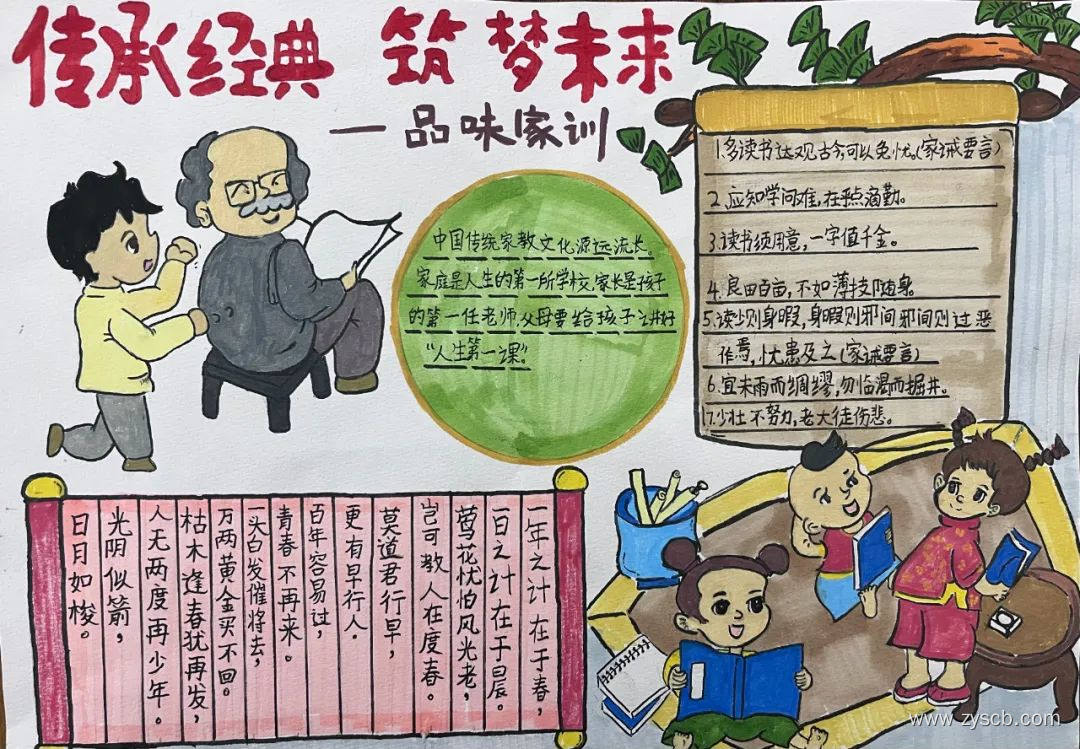 传承经典 筑梦未来
—品味家训
中国传统家教文化源远流长。
家庭是人生的第一所学校,家长是孩子
的第一任老师,父母要给孩子讲好
“人生第一课”。
1.多读书达观古今,可以免忧。(家诫要言)
2.应知学问难,在乎点滴勤。
3.读书须用意,一字值千金。
4.良田百亩,不如薄技随身。
5.读少则身暇,身暇则邪间,邪间则过恶
作焉,忧患及之(家诫要言)
6.宜未雨而绸缪,勿临渴而掘井。
7.少壮不努力,老大徒伤悲。
一年之计在于春,
一日之计在于晨。
莺花忧怕风光老,
岂可教人在度春。
莫道君行早,
更有早行人.
百年容易过,
青春不再来。
一头白发催将去,
万两黄金买不回。
枯木逢春犹再发,
人无两度再少年。
光阴似箭,
日月如梭。
www.zyscb.com